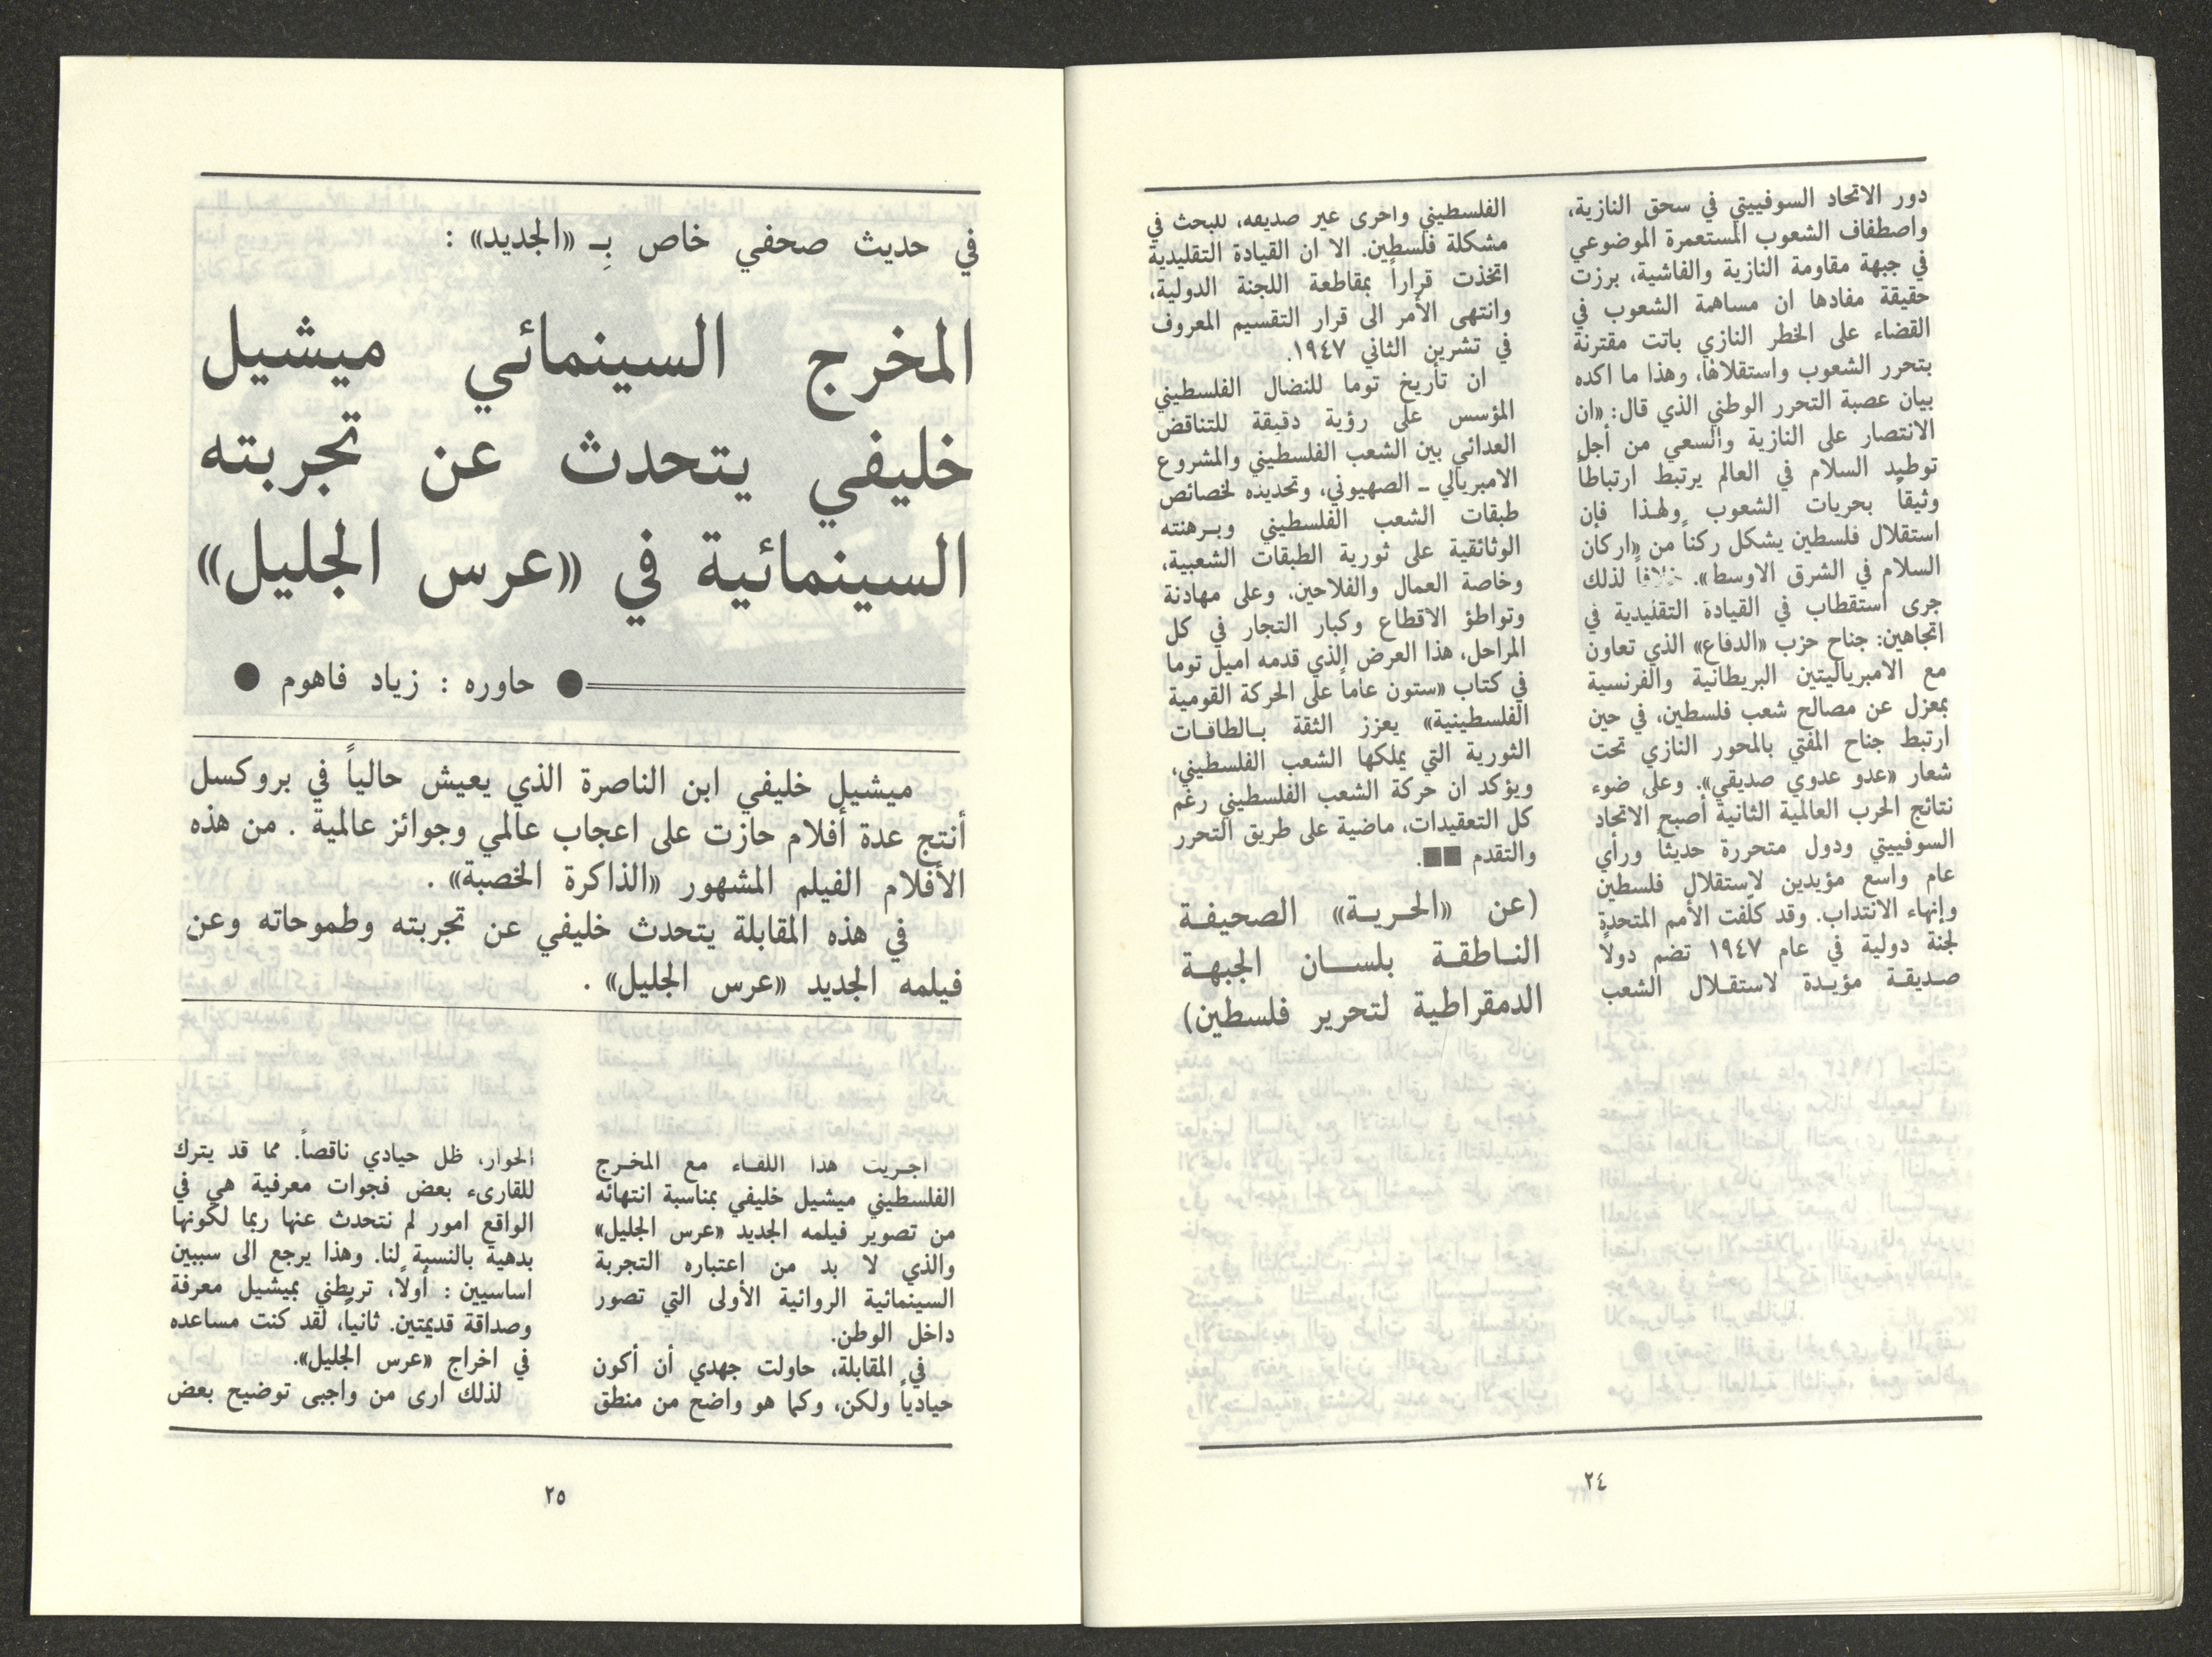 دور الاتحاد السوفييتي في سحق النازية،
واصطفاف الشعوب المستعمرة الموضوعي
في جبهة مقاومة النازية والفاشية، برزت
حقيقة مفادها ان مساهمة الشعوب في
القضاء على الخطر النازي باتت مقترنة
بتحرر الشعوب واستقلالها، وهذا ما اكده
بيان عصبة التحرر الوطني الذي قال: «ان
الانتصار على النازية والسعي من أجل
توطيد السلام في العالم يرتبط ارتباطاً
وثيقاً بحريات الشعوب ولهذا فإن
استقلال فلسطين يشكل ركناً من «اركان
السلام في الشرق الاوسط». خلافاً لذلك
جرى استقطاب في القيادة التقليدية في
اتجاهين: جناح حزب «الدفاع» الذي تعاون
مع الامبرياليتين البريطانية والفرنسية
بمعزل عن مصالح شعب فلسطين، في حين
ارتبط جناح المفتي بالمحور النازي تحت
شعار «عدو عدوي صديقي». وعلى ضوء
نتائج الحرب العالمية الثانية أصبح الاتحاد
السوفييتي ودول متحررة حديثاً ورأي
عام واسع مؤيدين لاستقلال فلسطين
وإنهاء الانتداب. وقد كلّفت الأمم المتحدة
لجنة دولية في عام ١٩٤٧ تضم دولاً
صديقة مؤيدة لاستقلال الشعب
الفلسطيني واخرى غير صديقه، للبحث في
مشكلة فلسطين. الا ان القيادة التقليدية
اتخذت قراراً بمقاطعة اللجنة الدولية،
وانتهى الأمر الى قرار التقسيم المعروف
في تشرين الثاني ١٩٤٧.
ان تأريخ توما للنضال الفلسطيني
المؤسس على رؤية دقيقة للتناقض
العدائي بين الشعب الفلسطيني والمشروع
الامبريالي ــ الصهيوني، وتحديده لخصائص
طبقات الشعب الفلسطيني وبرهنته
الوثائقية على ثورية الطبقات الشعبية،
وخاصة العمال والفلاحين، وعلى مهادنة
وتواطؤ الاقطاع وكبار التجار في كل
المراحل، هذا العرض الذي قدمه اميل توما
في كتاب «ستون عاماً على الحركة القومية
الفلسطينية» يعزز الثقة بالطاقات
الثورية التي يملكها الشعب الفلسطيني،
ويؤكد ان حركة الشعب الفلسطيني رغم
كل التعقيدات، ماضية على طريق التحرر
والتقدم ■■.
(عن «الحرية» الصحيفة
الناطقة بلسان الجبهة
الدمقراطية لتحرير فلسطين)
٢٤
في حديث صحفي خاص بِـ «الجديد» :
المخرج السينمائي ميشيل
خليفي يتحدث عن تجربته
السينمائية في «عرس الجليل»
● حاوره : زياد فاهوم ●
ميشيل خليفي ابن الناصرة الذي يعيش حالياً في بروكسل
أنتج عدة أفلام حازت على اعجاب عالمي وجوائز عالمية . من هذه
الأفلام الفيلم المشهور «الذاكرة الخصبة» .
في هذه المقابلة يتحدث خليفي عن تجربته وطموحاته وعن
فيلمه الجديد «عرس الجليل» .
اجريت هذا اللقاء مع المخرج
الفلسطيني ميشيل خليفي بمناسبة انتهائه
من تصوير فيلمه الجديد «عرس الجليل»
والذي لا بد من اعتباره التجربة
السينمائية الروائية الأولى التي تصور
داخل الوطن.
في المقابلة، حاولت جهدي أن أكون
حيادياً ولكن، وكما هو واضح من منطق
الحوار، ظل حيادي ناقصاً. مما قد يترك
للقارىء بعض فجوات معرفية هي في
الواقع امور لم نتحدث عنها ربما لكونها
بدهية بالنسبة لنا. وهذا يرجع الى سببين
اساسيين : أولاً، تربطني بميشيل معرفة
وصداقة قديمتين. ثانياً، لقد كنت مساعده
في اخراج «عرس الجليل».
لذلك ارى من واجبي توضيح بعض
٢٥